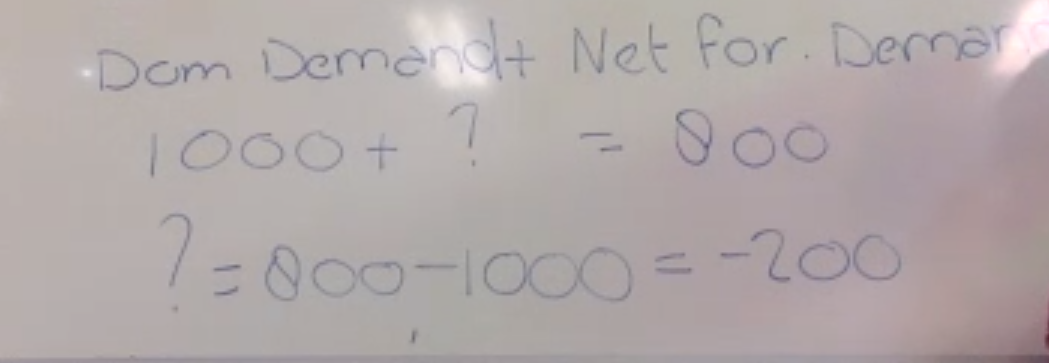 Dom Demand + Net for. Deman
1000 + ? = 800
? = 800 - 1000 = -200